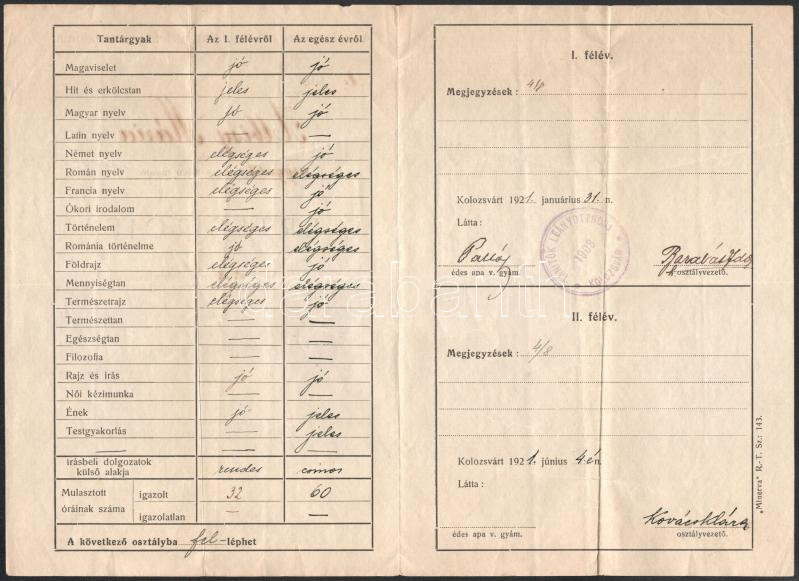 Tantárgyak Az I. félévről Az egész évről
Magaviselet jó jó
Hit és erkölcstan jeles jeles
Magyar nyelv jó jó
Latin nyelv — —
Német nyelv elégséges jó
Román nyelv elégséges elégséges
Francia nyelv elégséges jó
Ókori irodalom — jó
Történelem elégséges elégséges
Románia történelme jó elégséges
Földrajz elégséges jó
Mennyiségtan elégséges elégséges
Természetrajz elégséges jó
Természettan — —
Egészségtan — —
Filozofia — —
Rajz és írás jó jó
Női kézimunka — —
Ének jó jeles
Testgyakorlás — jeles
— — —
Írásbeli dolgozatok
külső alakja rendes csinos
Mulasztott óráinak száma igazolt 32 60
igazolatlan — —
A következő osztályba fel-léphet
I. félév.
Megjegyzések: 4/8
Kolozsvárt 1921. januárius 31. n.
Látta:
1908
KOLOZSVÁR
édes apa v. gyám.
osztályvezető.
II. félév.
Megjegyzések: 4/8
Kolozsvárt 1921. június 4-én.
Látta:
Kovács Klára
édes apa v. gyám.
osztályvezető.
„Minerva" R.-T. Sz.: 143.
darabanth